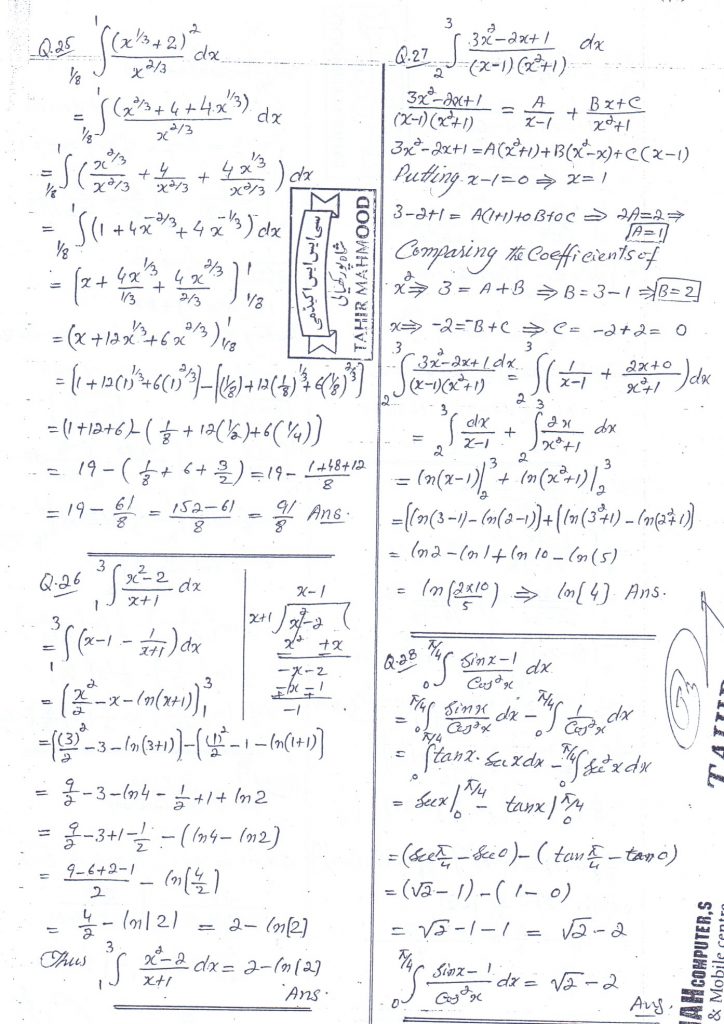 Q.25 ∫_{1/8}^{1} (x^{1/3}+2)^2 / x^{2/3} dx
= ∫_{1/8}^{1} (x^{2/3}+4+4x^{1/3}) / x^{2/3} dx
= ∫_{1/8}^{1} (x^{2/3}/x^{2/3} + 4/x^{2/3} + 4x^{1/3}/x^{2/3}) dx
= ∫_{1/8}^{1} (1+4x^{-2/3}+4x^{-1/3}) dx
= [x + 4x^{1/3}/(1/3) + 4x^{2/3}/(2/3)]_{1/8}^{1}
= (x+12x^{1/3}+6x^{2/3})_{1/8}^{1}
= [1+12(1)^{1/3}+6(1)^{2/3}]-[(1/8)+12(1/8)^{1/3}+6(1/8)^{2/3}]
= (1+12+6)-(1/8+12(1/2)+6(1/4))
= 19-(1/8+6+3/2) = 19- (1+48+12)/8
= 19 - 61/8 = (152-61)/8 = 91/8 Ans.
Q.26 ∫_{1}^{3} (x^2-2)/(x+1) dx
= ∫_{1}^{3} (x-1 - 1/(x+1)) dx
= [x^2/2 - x - ln(x+1)]_{1}^{3}
= [(3)^2/2 - 3 - ln(3+1)]-[(1)^2/2 - 1 - ln(1+1)]
= 9/2 - 3 - ln4 - 1/2 + 1 + ln2
= 9/2 - 3+1 - 1/2 - (ln4 - ln2)
= (9-6+2-1)/2 - ln[4/2]
= 4/2 - ln|2| = 2 - ln[2]
Thus ∫_{1}^{3} (x^2-2)/(x+1) dx = 2 - ln[2]
Ans.
x-1
x+1 √ x^2-2
x^2 +x
-x-2
-x-1
-1
سی ایس ایس اکیڈمی
TAHIR MAHMOOD
Q.27 ∫_{2}^{3} (3x^2-2x+1)/((x-1)(x^2+1)) dx
(3x^2-2x+1)/((x-1)(x^2+1)) = A/(x-1) + (Bx+C)/(x^2+1)
3x^2-2x+1 = A(x^2+1)+B(x^2-x)+C(x-1)
Putting x-1=0 ⇒ x=1
3-2+1 = A(1+1)+0B+0C ⇒ 2A=2 ⇒
A=1
Comparing the Coefficients of
x^2 ⇒ 3 = A+B ⇒ B=3-1 ⇒ B=2
x ⇒ -2=-B+C ⇒ C= -2+2= 0
∫_{2}^{3} (3x^2-2x+1)/((x-1)(x^2+1)) dx = ∫_{2}^{3} (1/(x-1) + (2x+0)/(x^2+1)) dx
= ∫_{2}^{3} dx/(x-1) + ∫_{2}^{3} 2x/(x^2+1) dx
= ln(x-1)|_{2}^{3} + ln(x^2+1)|_{2}^{3}
= [ln(3-1)-ln(2-1)]+[ln(3^2+1)-ln(2^2+1)]
= ln2-ln1+ln10-ln(5)
= ln(2x10/5) ⇒ ln[4] Ans.
Q.28 ∫_{0}^{π/4} (Sinx-1)/Cos^2x dx
= ∫_{0}^{π/4} Sinx/Cos^2x dx - ∫_{0}^{π/4} 1/Cos^2x dx
= ∫_{0}^{π/4} tanx.Secxdx - ∫_{0}^{π/4} Sec^2xdx
= Secx|_{0}^{π/4} - tanx|_{0}^{π/4}
= (Sec π/4 - Sec0)-(tan π/4 - tan0)
= (√2-1)-(1-0)
= √2-1-1 = √2-2
∫_{0}^{π/4} (Sinx-1)/Cos^2x dx = √2-2
Ans.
COMPUTER,S
& Mobile centre